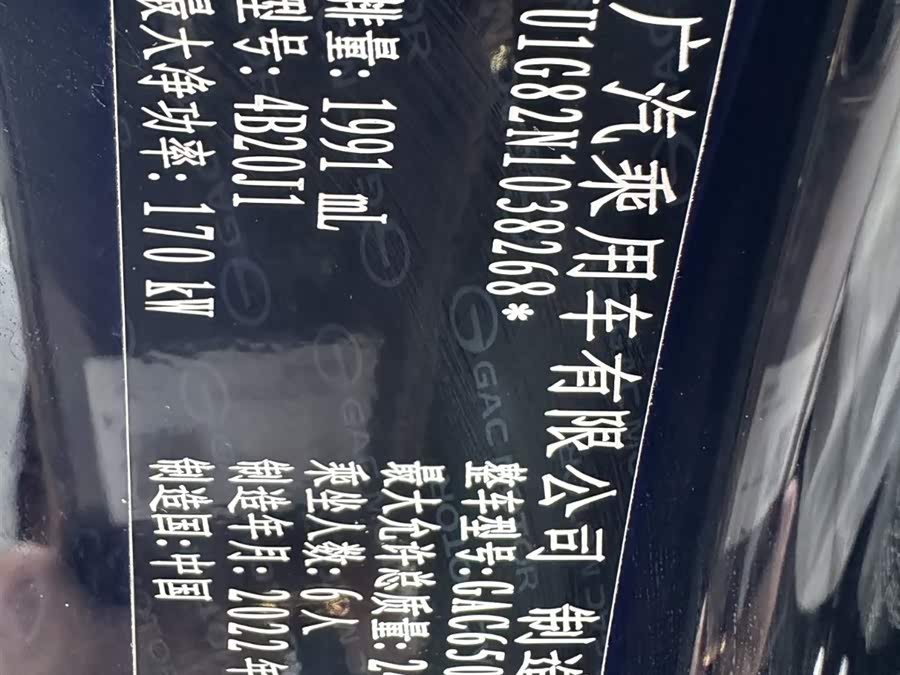 广汽乘用车有限公司 制造
TU1G82N1038268*
整车型号:GAC650
排量: 1991 mL
最大允许总质量:2
型号: 4B20J1
乘坐人数:6人
最大净功率: 170 kW
制造年月:2022年
制造国:中国
GAC MOTOR